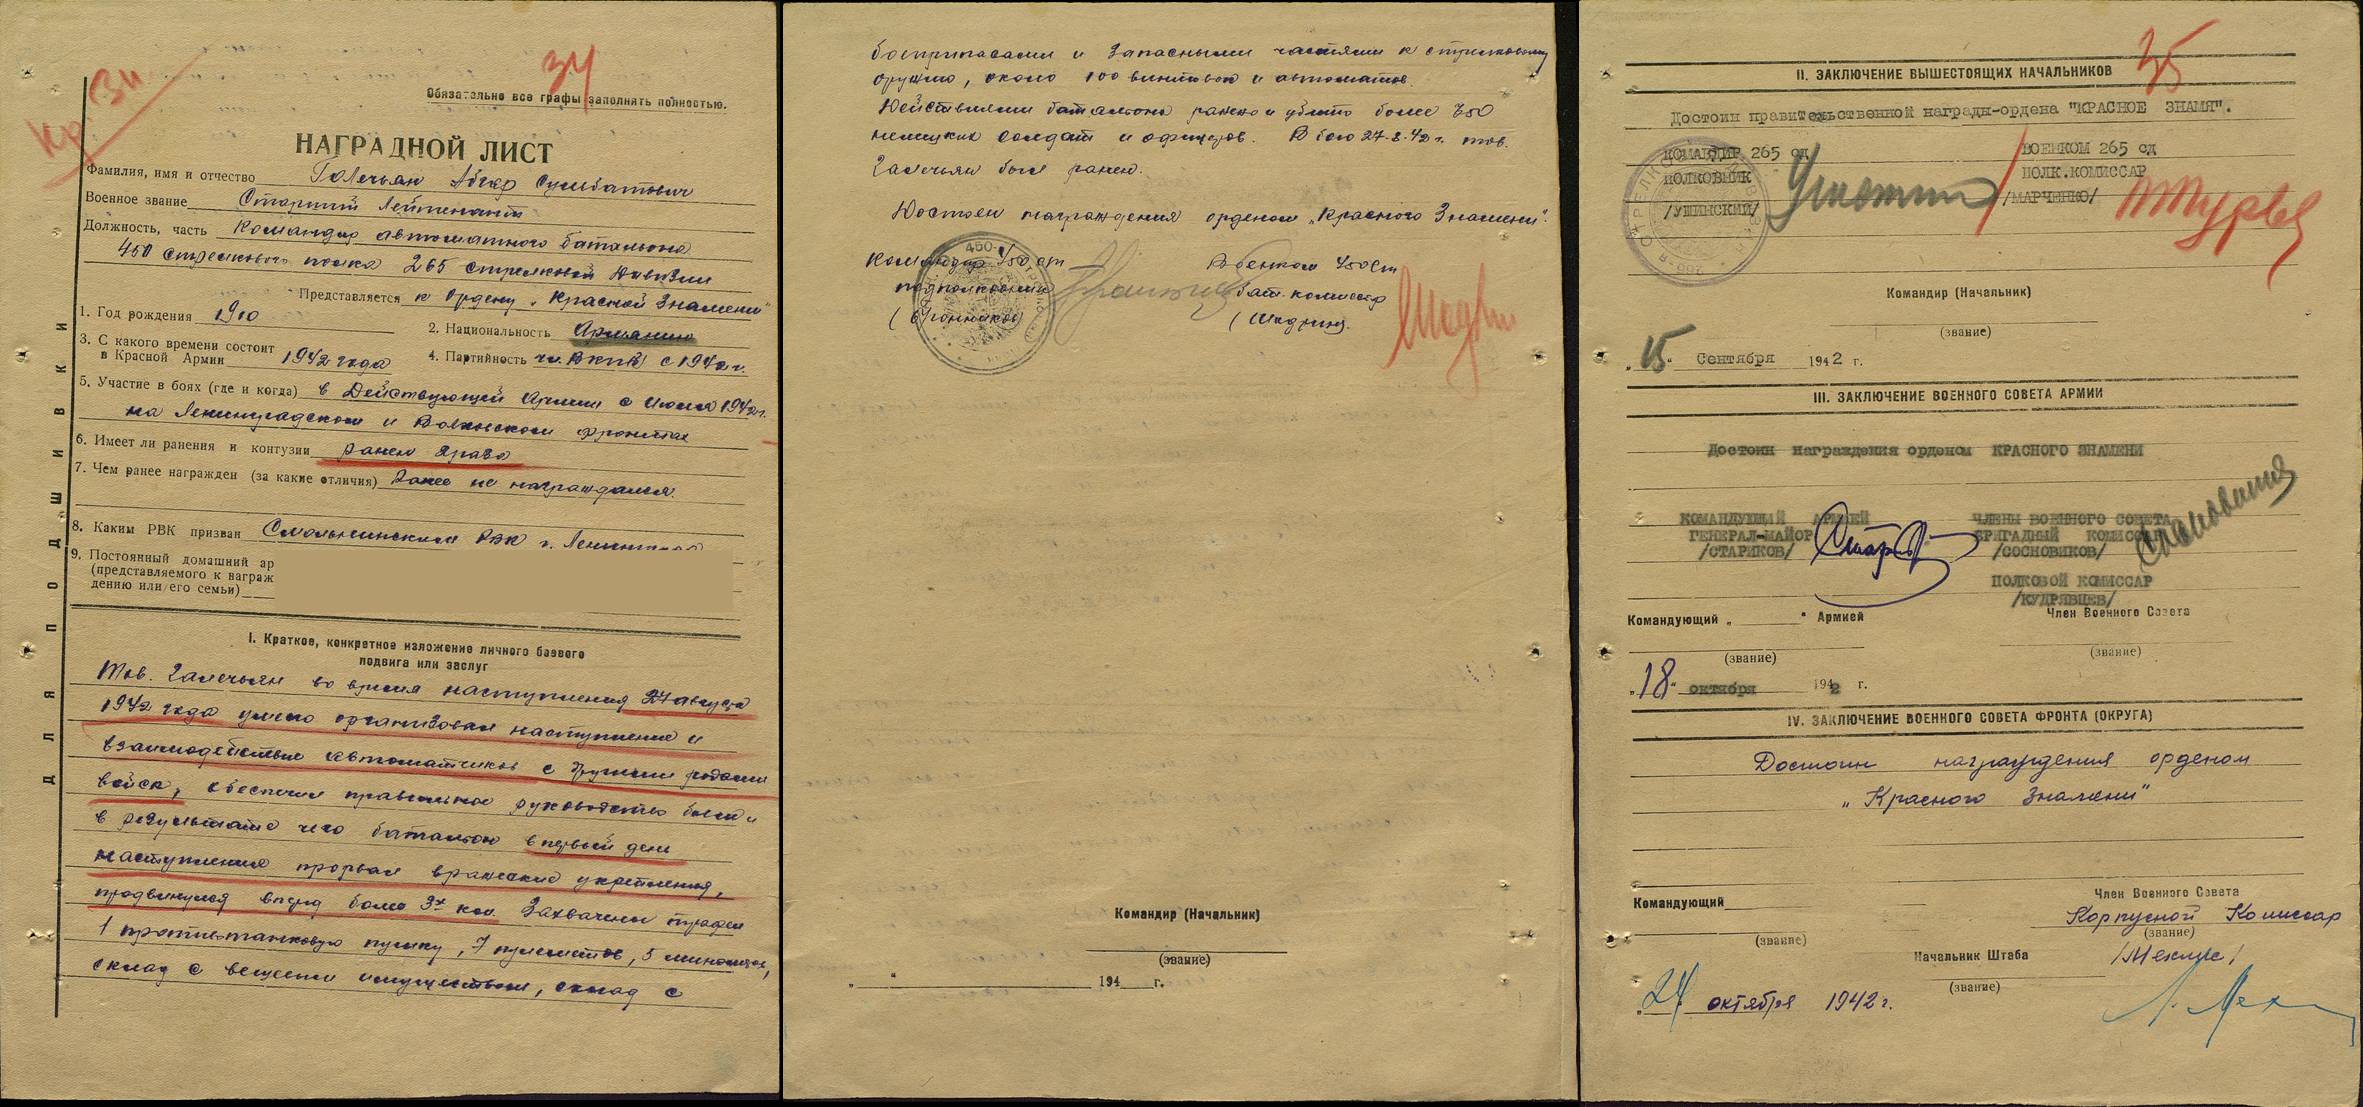 Кр. Зн
34
Обязательно все графы заполнять полностью.
НАГРАДНОЙ ЛИСТ
Фамилия, имя и отчество Галечьян Абгар Сумбатович
Военное звание Старший Лейтенант
Должность, часть Командир автоматного батальона
450 стрелкового полка 265 стрелковой Дивизии
Представляется к Ордену „Красной Знамени"
1. Год рождения 1910
2. Национальность Армянин
3. С какого времени состоит
в Красной Армии 1942 года
4. Партийность чл. ВКП(б) с 1942 г.
5. Участие в боях (где и когда) в Действующей Армии с Июля 1942 г.
на Ленинградском и Волховском фронтах
6. Имеет ли ранения и контузии ранен
7. Чем ранее награжден (за какие отличия) Ранее не награждался.
8. Каким РВК призван Смольнинским РВК г. Ленинграда
9. Постоянный домашний ар
(представляемого к награж
дению или его семьи)
ДЛЯ ПОДШИВКИ
I. Краткое, конкретное изложение личного боевого
подвига или заслуг
Тов. Галечьян во время наступления 27 августа
1942 года умело организовал наступление и
взаимодействие автоматчиков с другими родами
войск, обеспечил правильное руководство боем и
в результате чего батальон в первый день
наступления прорвал вражеские укрепления,
продвинулся вперед более 3х км. Захвачены трофеи
1 противотанковую пушку, 7 пулеметов, 5 минометов,
склад с вещевым имуществом, склад с
боеприпасами и запасными частями к стрелковому
оружию, около 100 винтовок и автоматов.
Действиями батальона ранено и убито более 750
немецких солдат и офицеров. В бою 27.8.42 г. тов.
Галечьян был ранен.
Достоен награждения орденом „Красного Знамени".
Командир 450 сп
подполковник
Военком 450 сп
бат. комиссар
(Шадрин)
Командир (Начальник)
(звание)
„ 194 г.
35
II. ЗАКЛЮЧЕНИЕ ВЫШЕСТОЯЩИХ НАЧАЛЬНИКОВ
Достоин правительственной награды-ордена "КРАСНОЕ ЗНАМЯ".
КОМАНДИР 265 сд
ПОЛКОВНИК
/УШИНСКИЙ/
ВОЕНКОМ 265 сд
ПОЛК.КОМИССАР
/МАРЧЕНКО/
Командир (Начальник)
(звание)
„15" Сентября 1942 г.
III. ЗАКЛЮЧЕНИЕ ВОЕННОГО СОВЕТА АРМИИ
Достоин награждения орденом КРАСНОГО ЗНАМЕНИ
КОМАНДУЮЩИЙ АРМИЕЙ
ГЕНЕРАЛ-МАЙОР
/СТАРИКОВ/
ЧЛЕНЫ ВОЕННОГО СОВЕТА
БРИГАДНЫЙ КОМИССАР
/СОСНОВИКОВ/
ПОЛКОВОЙ КОМИССАР
/КУДРЯВЦЕВ/
Командующий „ " Армией
Член Военного Совета
(звание)
(звание)
„18" октября 1942 г.
IV. ЗАКЛЮЧЕНИЕ ВОЕННОГО СОВЕТА ФРОНТА (ОКРУГА)
Достоин награждения орденом
„Красного Знамени"
Член Военного Совета
Командующий
Корпусной Комиссар
(звание)
(звание)
Начальник Штаба
/Мехлис/
(звание)
„24" октября 1942 г.